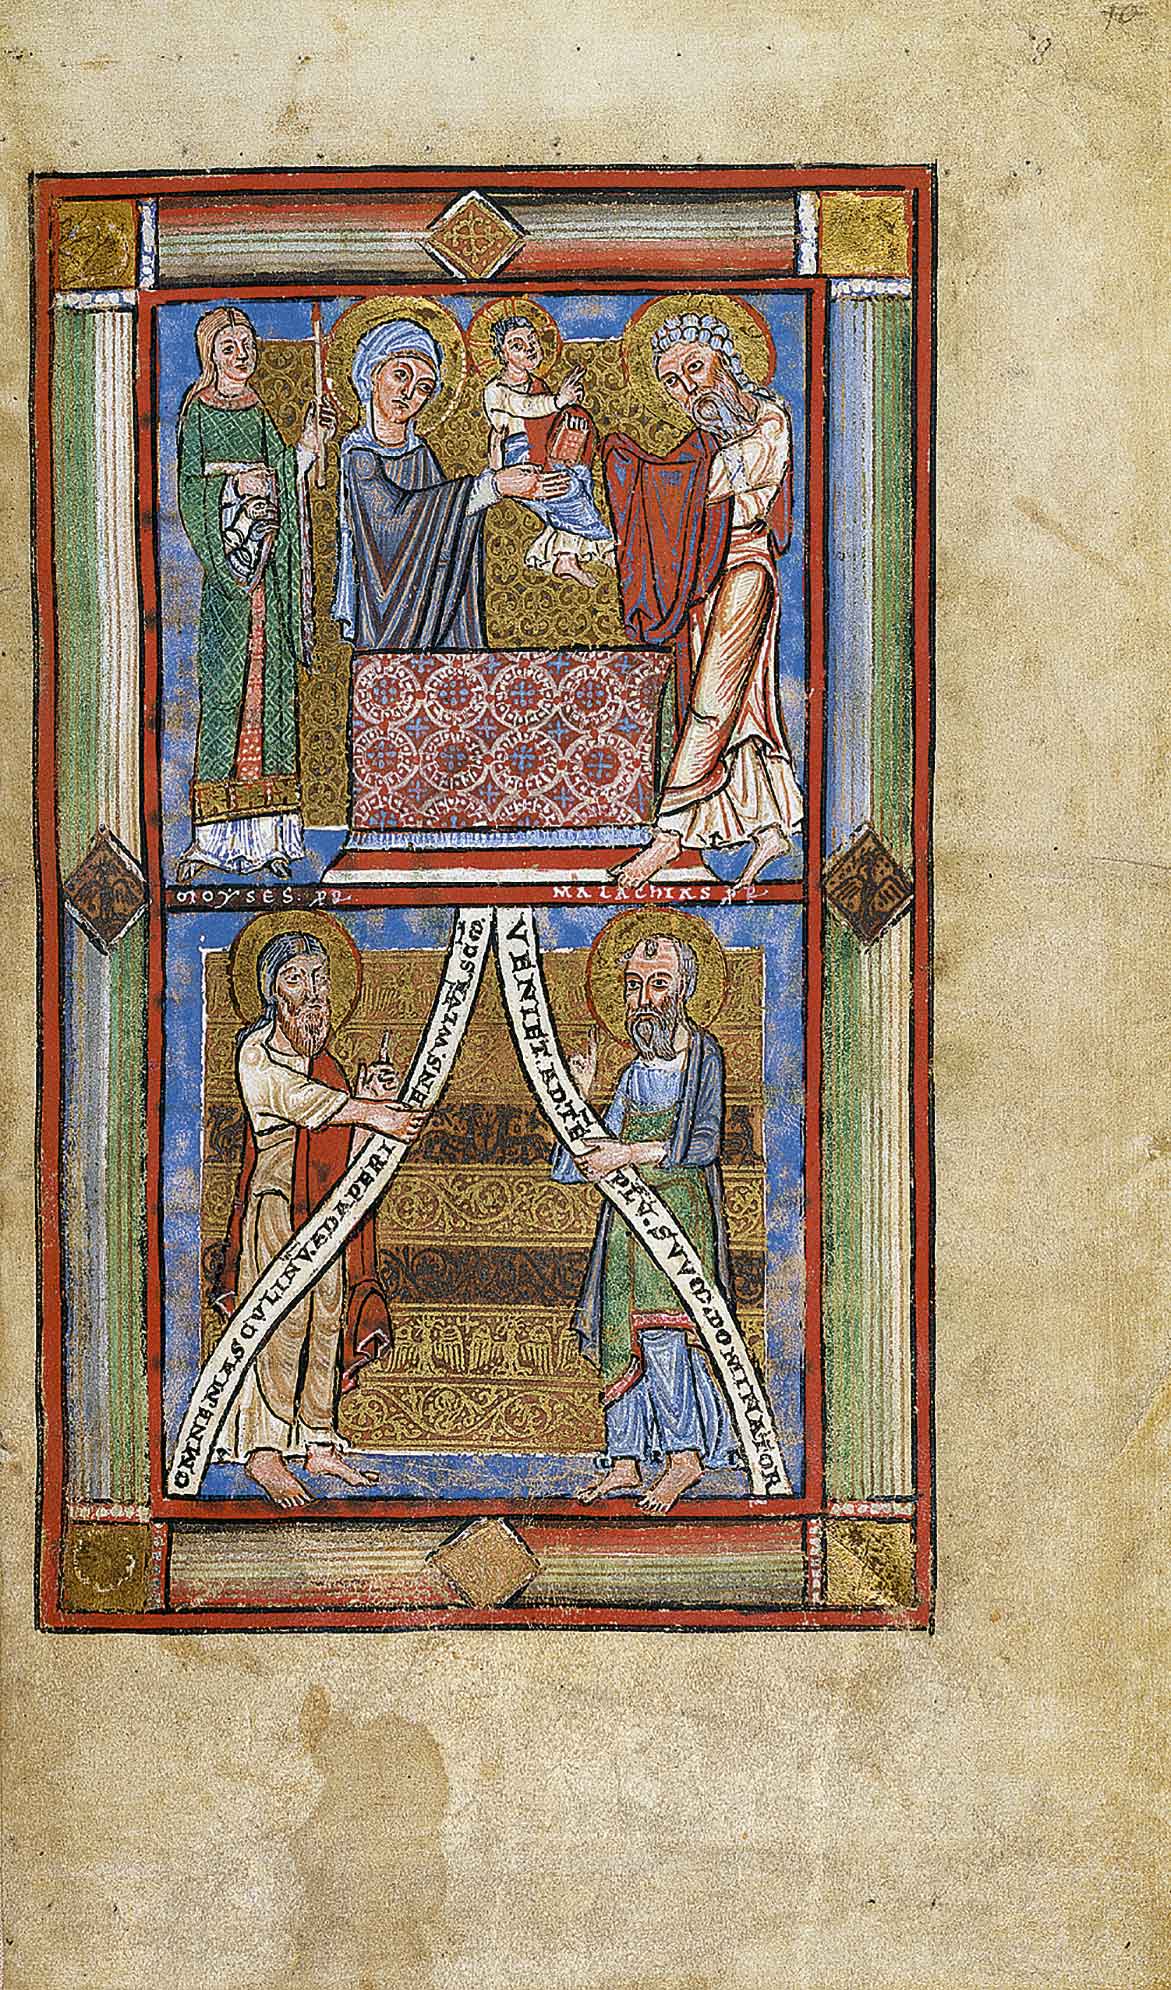 10
8
MOYSES. PP
MALACHIAS PP
OMNE MASCULINV. ADAPERI ENS. VVLVA. SCDM.
VENIET. AD TE PLV. SVVM. DOMINATOR